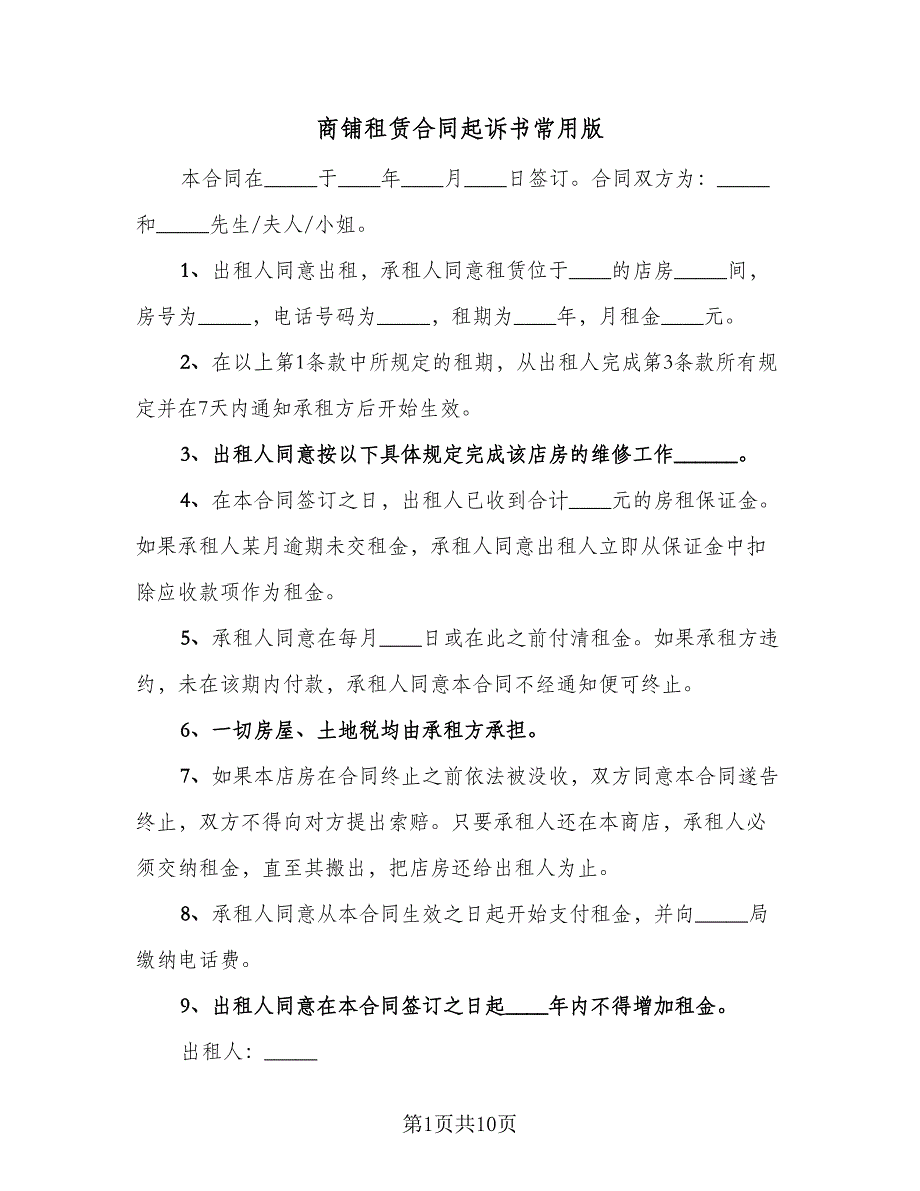 商铺租赁合同起诉书常用版
本合同在_____于____年____月____日签订。合同双方为：_____
和_____先生/夫人/小姐。
1、出租人同意出租，承租人同意租赁位于____的店房_____间，
房号为_____，电话号码为_____，租期为____年，月租金____元。
2、在以上第1条款中所规定的租期，从出租人完成第3条款所有规
定并在7天内通知承租方后开始生效。
3、出租人同意按以下具体规定完成该店房的维修工作______。
4、在本合同签订之日，出租人已收到合计____元的房租保证金。
如果承租人某月逾期未交租金，承租人同意出租人立即从保证金中扣
除应收款项作为租金。
5、承租人同意在每月____日或在此之前付清租金。如果承租方违
约，未在该期内付款，承租人同意本合同不经通知便可终止。
6、一切房屋、土地税均由承租方承担。
7、如果本店房在合同终止之前依法被没收，双方同意本合同遂告
终止，双方不得向对方提出索赔。只要承租人还在本商店，承租人必
须交纳租金，直至其搬出，把店房还给出租人为止。
8、承租人同意从本合同生效之日起开始支付租金，并向_____局
缴纳电话费。
9、出租人同意在本合同签订之日起____年内不得增加租金。
出租人：_____
第1页共10页